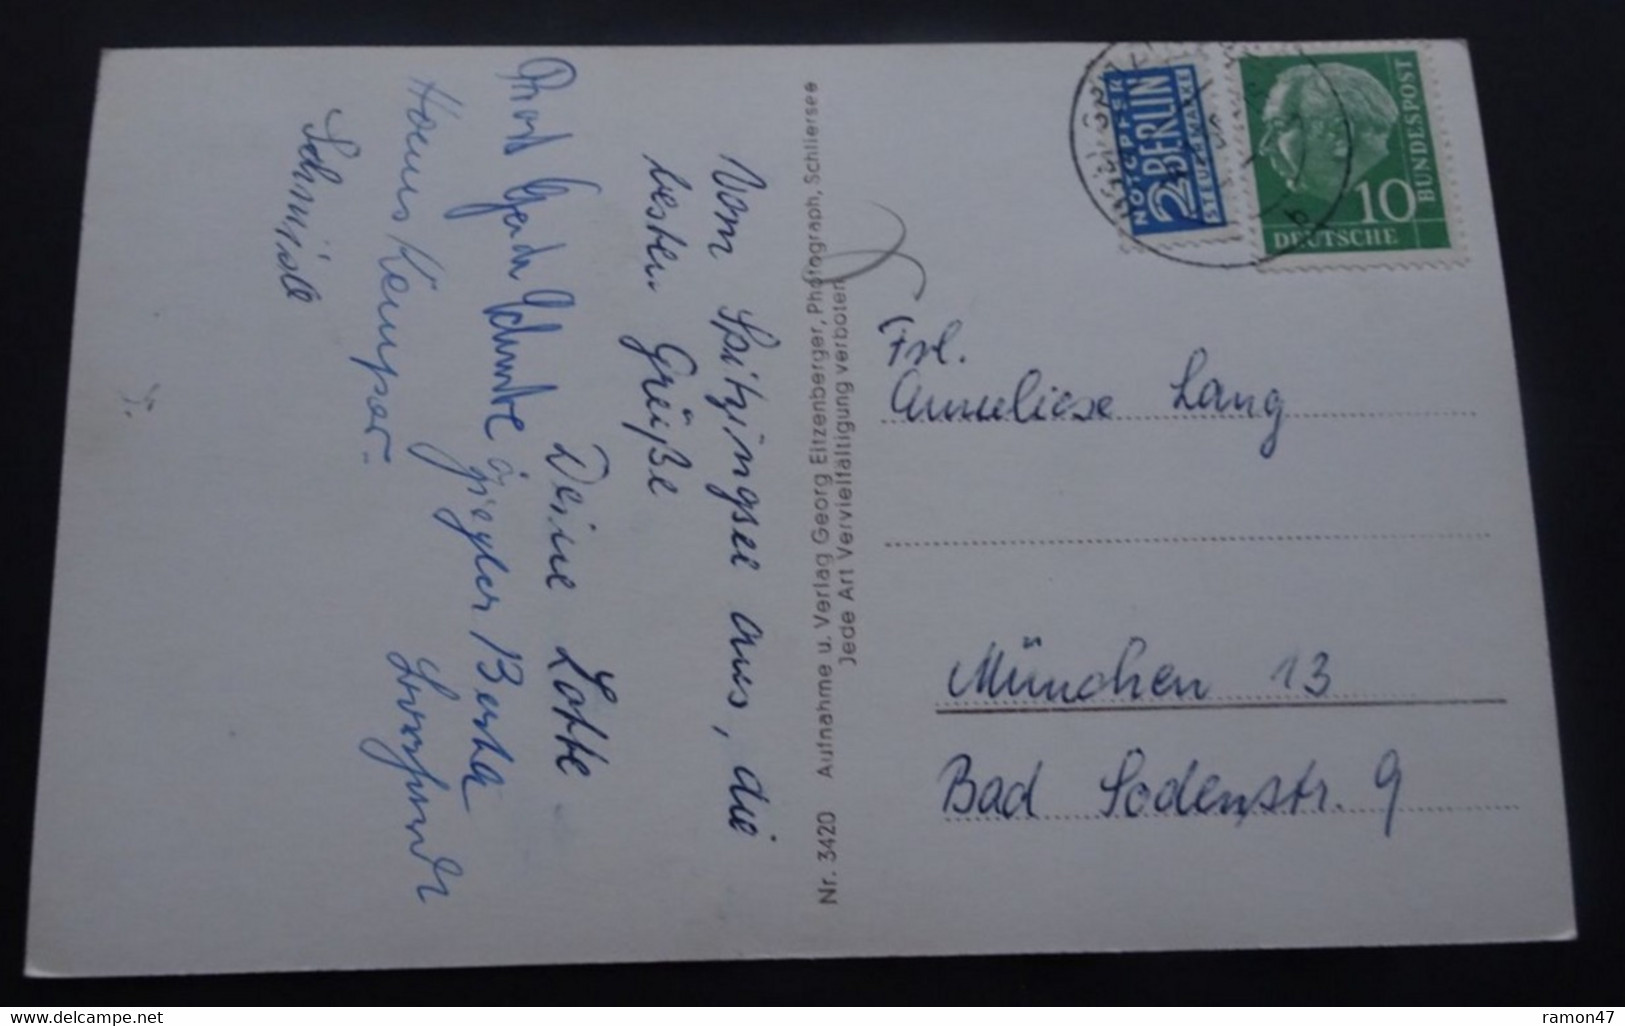 Vom Spitzingsee aus, die
besten Grüße
Deine Lotte
Gerda
Berta
Schmidt
Nr. 3420 Aufnahme u. Verlag Georg Eitzenberger, Photograph, Schliersee
Jede Art Vervielfältigung verboten
NOTOPFER
2 BERLIN
STEUERMARKE
10
DEUTSCHE
BUNDESPOST
Frl.
Anneliese Lang
München 13
Bad Sodenstr. 9
www.delcampe.net
ramon47